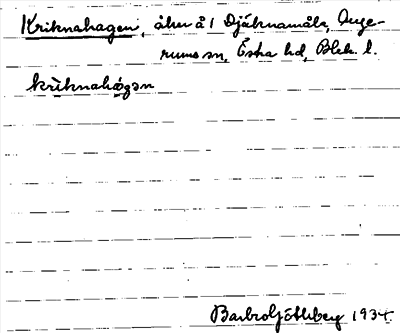 Kriknahagen, åker å 1 Djäknamåla, Auge-
rums sn, Östra hd, Blek. l.
krìknahàgən
Barbro Götlberg 1934.